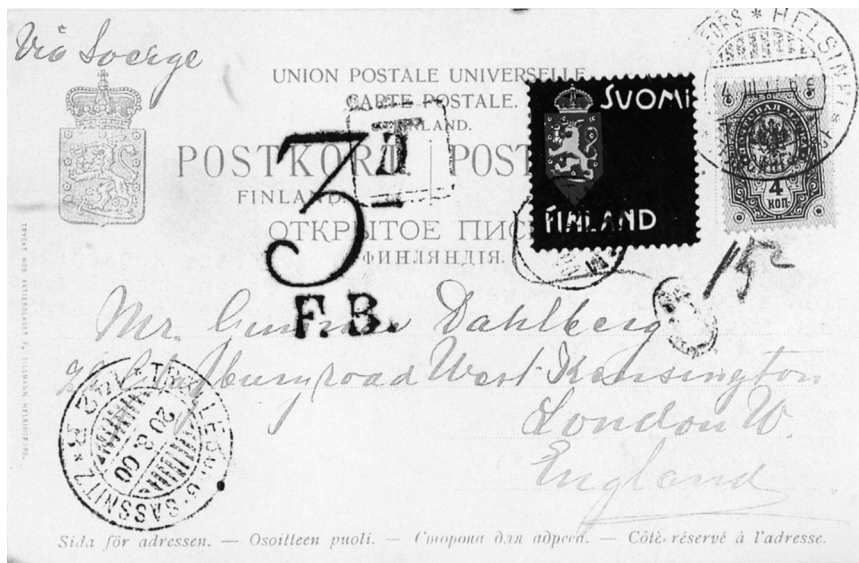 Viâ Sverge
UNION POSTALE UNIVERSELLE
CARTE POSTALE.
POSTKORT. POST
FINLAND.
ОТКРЫТОЕ ПИС
ФИНЛЯНДІЯ.
3D
F.B.
T
SUOMI
FINLAND
HELSINKI
4
КОП
15
Mr. Dahlberg
road West Kensington
London W.
England
TRELLEBORG SASSNITZ
20.8.00
Sida för adressen. — Osoitteen puoli. — Сторона для адреса. — Côté réservé à l'adresse.